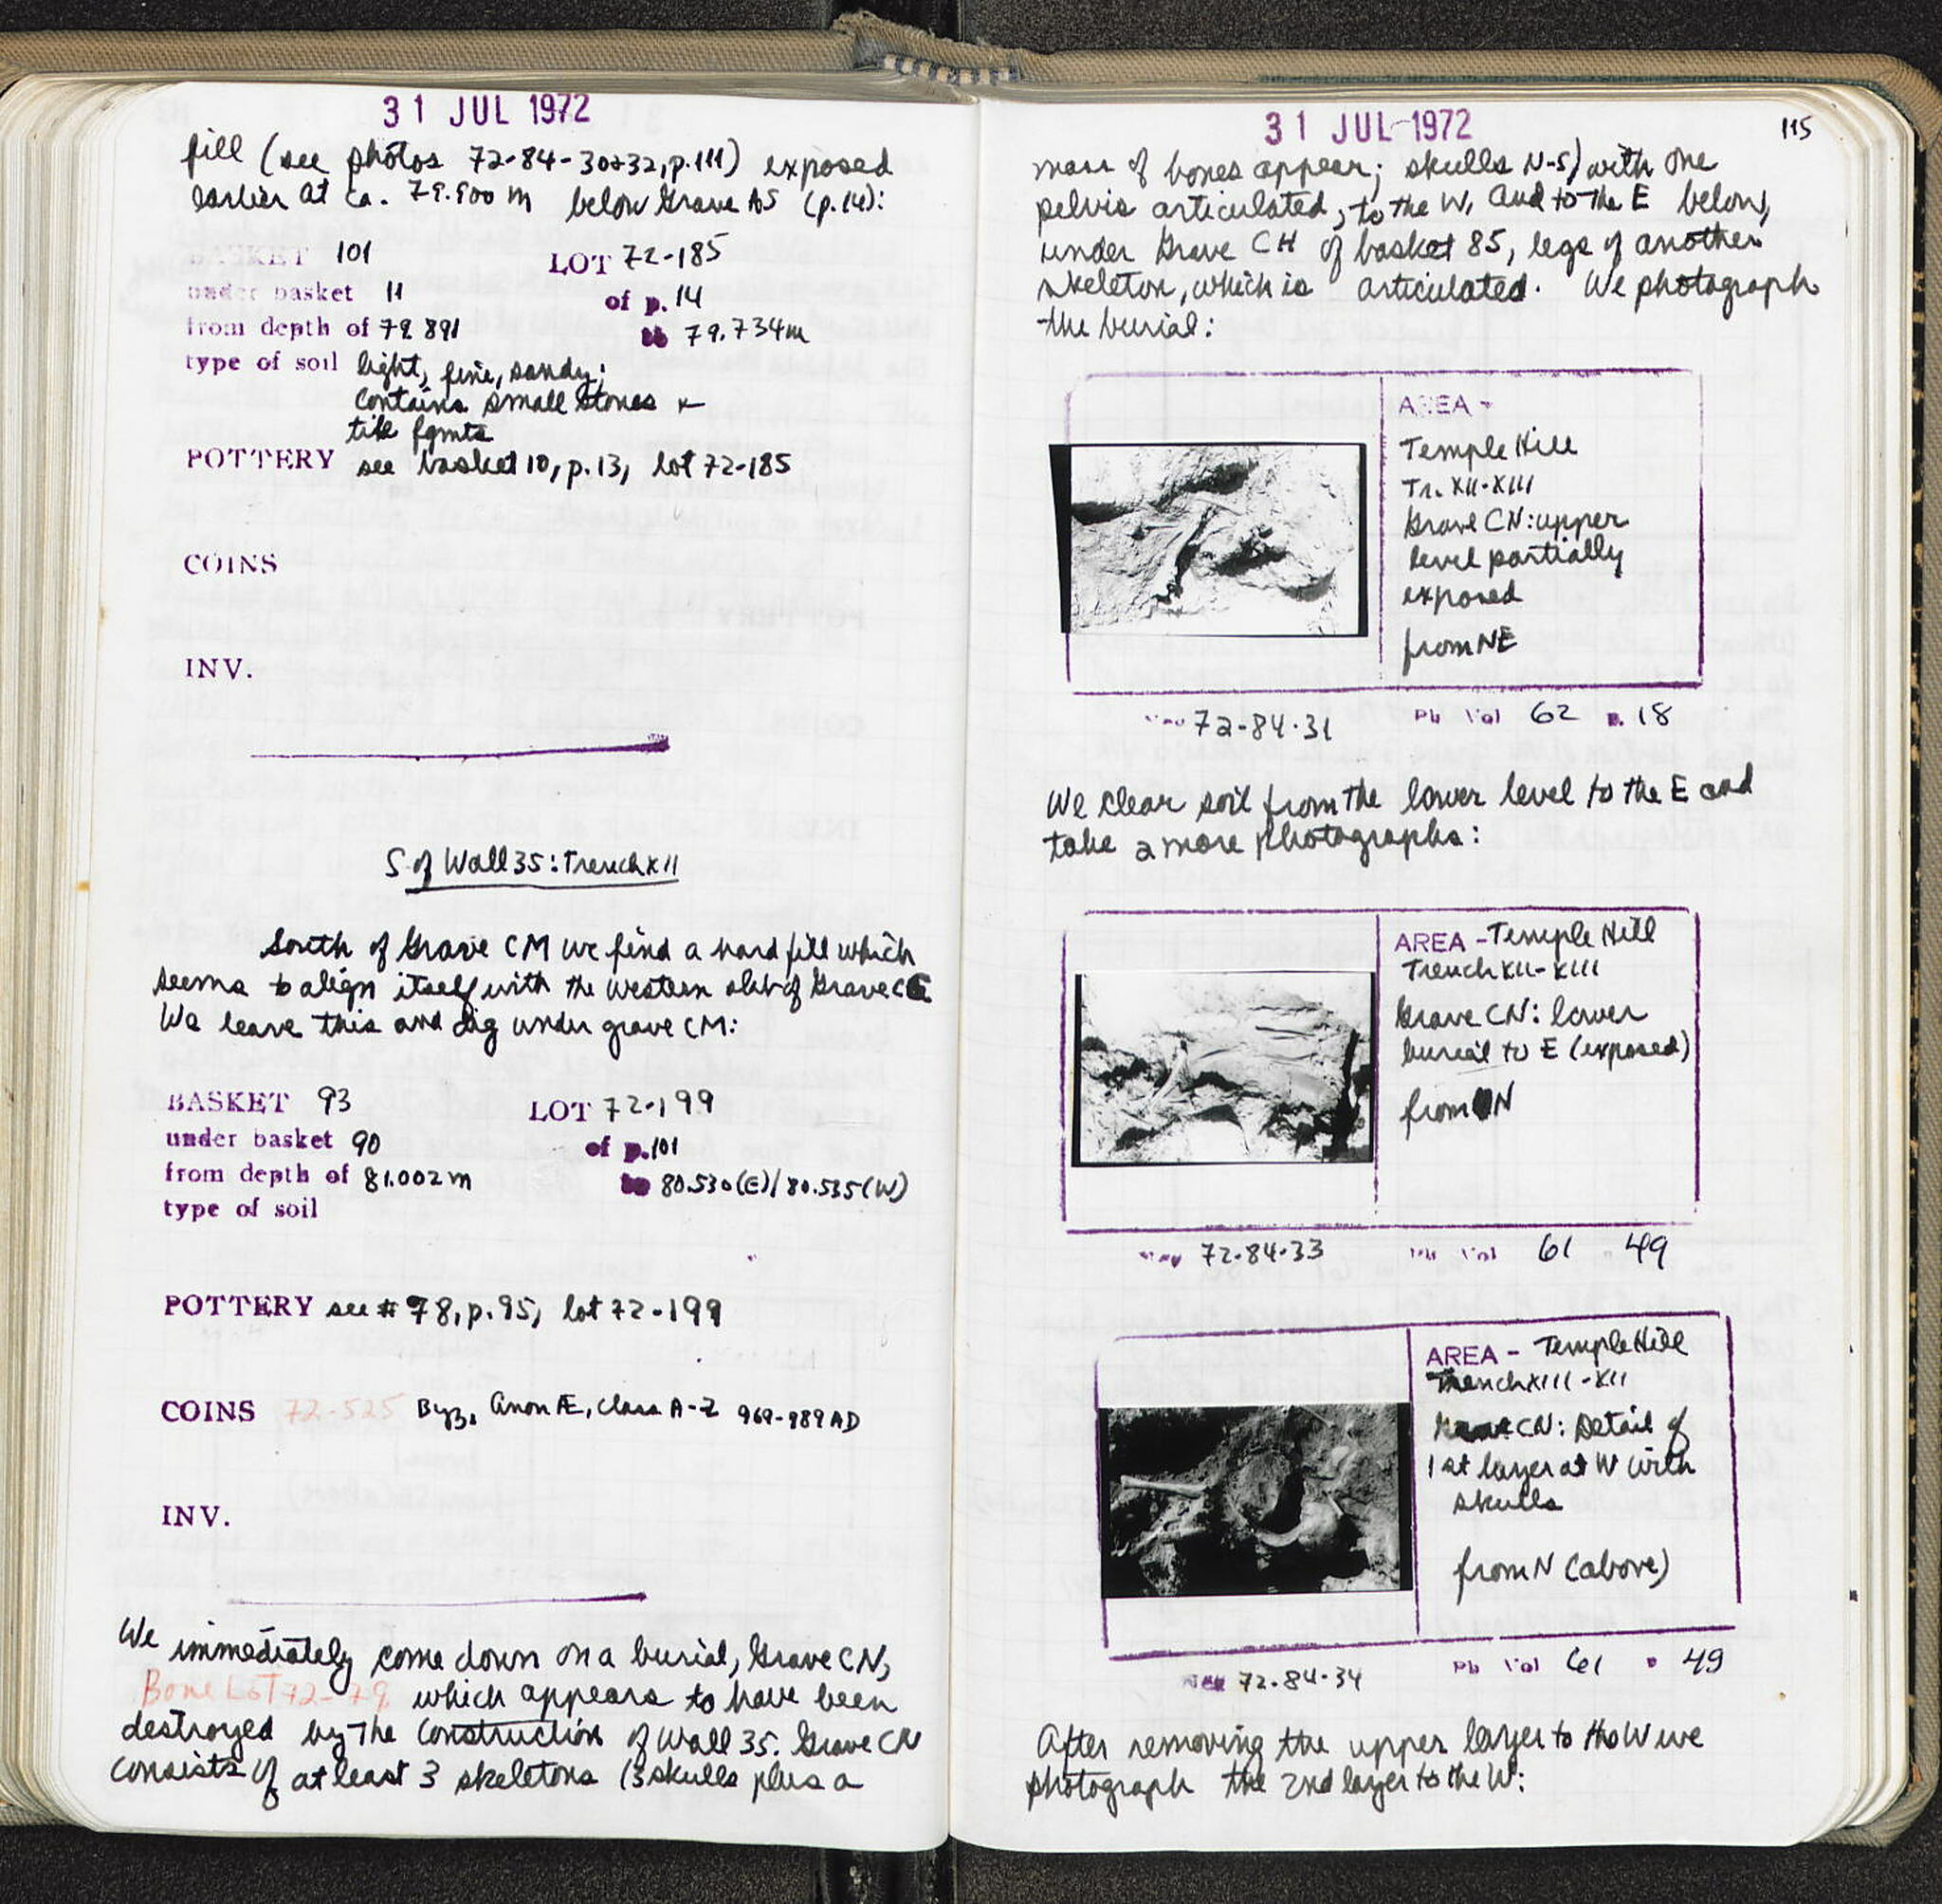 31 JUL 1972
fill (see photos 72-84-30+32, p.111) exposed
earlier at ca. 79.900 m below Grave AS (p.14):
BASKET 101 LOT 72-185
under basket 11 of p. 14
from depth of 79.891 to 79.734m
type of soil light, fine, sandy;
contains small stones +
tile fgmts
POTTERY see basket 10, p.13, lot 72-185
COINS
INV.
S of Wall 35: Trench XII
South of Grave CM we find a hard fill which
seems to align itself with the western slab of Grave CG
We leave this and dig under grave CM:
BASKET 93 LOT 72-199
under basket 90 of p. 101
from depth of 81.002m to 80.530(E)/80.535(W)
type of soil
POTTERY see #78, p.95, lot 72-199
COINS 72-525 Byz, Anon Æ, Class A-2 969-989 AD
INV.
We immediately come down on a burial, Grave CN,
Bone Lot 72-79, which appears to have been
destroyed by the construction of Wall 35. Grave CN
consists of at least 3 skeletons (3 skulls plus a
31 JUL 1972 115
mass of bones appear; skulls N-S) with one
pelvis articulated, to the W, and to the E below,
under Grave CH of basket 85, legs of another
skeleton, which is articulated. We photograph
the burial:
AREA -
Temple Hill
Tr. XII-XIII
Grave CN: upper
level partially
exposed
from NE
Neg 72-84-31 Ph Vol 62 p. 18
We clear soil from the lower level to the E and
take 2 more photographs:
AREA - Temple Hill
Trench XII-XIII
Grave CN: lower
burial to E (exposed)
from N
Neg 72-84-33 Ph Vol 61 49
AREA - Temple Hill
Trench XIII-XII
Grave CN: Detail of
1st layer at W with
skulls
from N (above)
Neg 72-84-34 Ph Vol 61 p 49
After removing the upper layer to the W we
photograph the 2nd layer to the W: